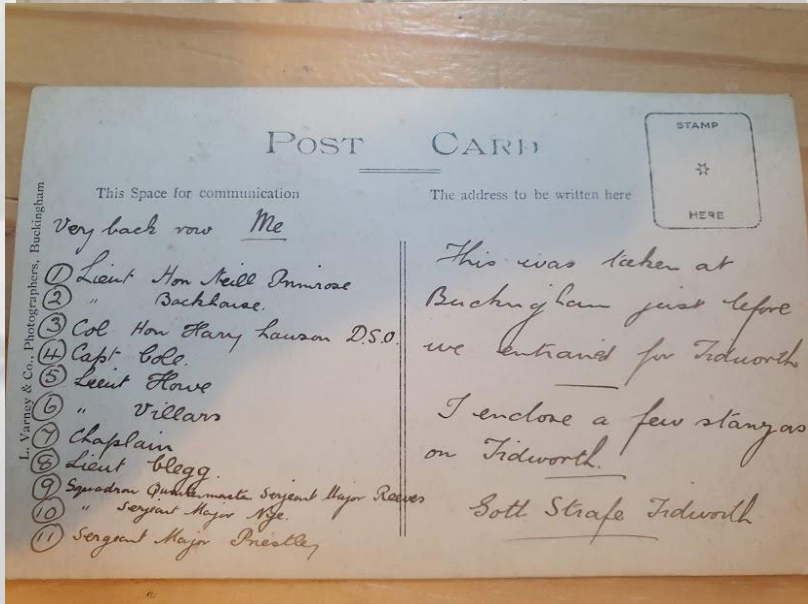 POST CARD
STAMP
HERE
This Space for communication
The address to be written here
L. Varney & Co., Photographers, Buckingham
Very back row Me
① Lieut Hon Neill Primrose
② " Backhouse.
③ Col Hon Harry Lawson D.S.O.
④ Capt Cole.
⑤ Lieut Howe
⑥ " Villars
⑦ Chaplain
⑧ Lieut Clegg.
⑨ Squadron Quartermaster Sergeant Major Reeves
⑩ " Sergeant Major Nye.
⑪ Sergeant Major Priestley
This was taken at
Buckingham just before
we entrained for Tidworth
I enclose a few stanzas
on Tidworth.
Gott Strafe Tidworth